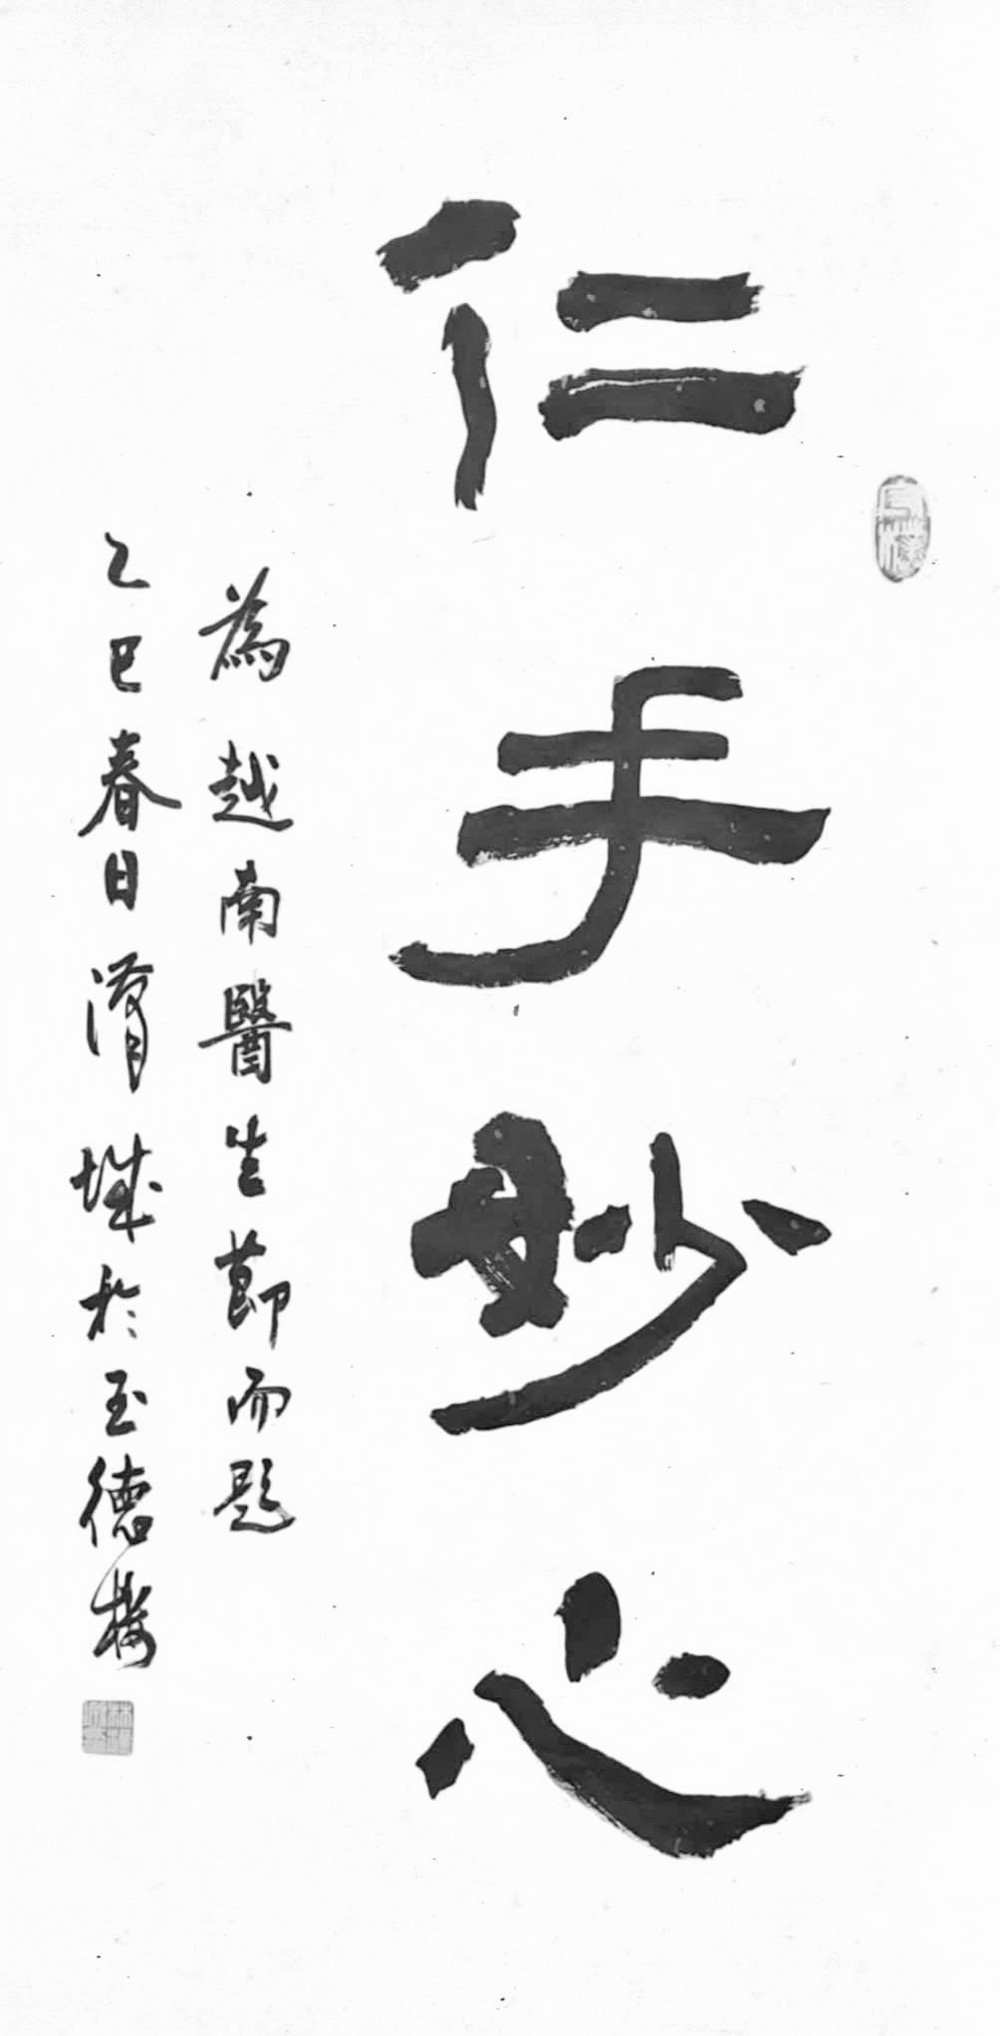 仁手妙心
為越南醫生節而題
乙巳春日濱城於玉德樓